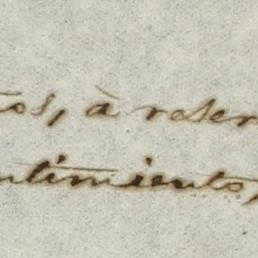 tos, à reser
ntimiento,